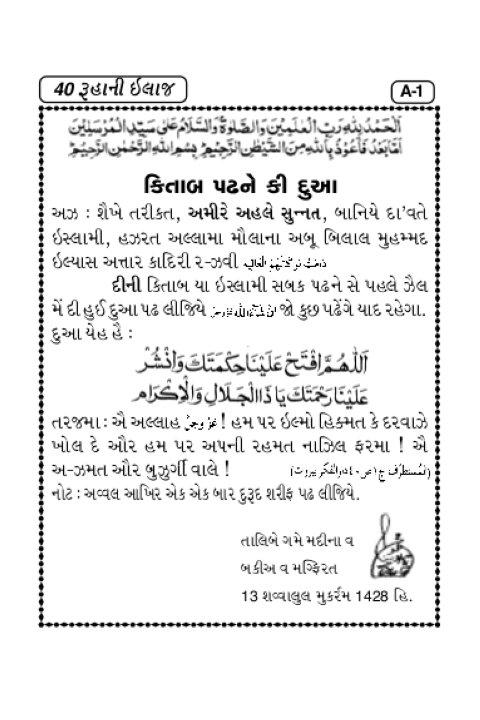 40 રૂહાની ઇલાજ
A-1
اَلْحَمْدُ لِلّٰهِ رَبِّ الْعٰلَمِيْنَ وَالصَّلٰوةُ وَالسَّلَامُ عَلٰى سَيِّدِ الْمُرْسَلِيْنَ
اَمَّا بَعْدُ فَاَعُوْذُ بِاللّٰهِ مِنَ الشَّيْطٰنِ الرَّجِيْمِ بِسْمِ اللّٰهِ الرَّحْمٰنِ الرَّحِيْمِ
કિતાબ પઢને કી દુઆ
અઝ : શૈખે તરીકત, અમીરે અહલે સુન્નત, બાનિયે દા'વતે
ઇસ્લામી, હઝરત અલ્લામા મૌલાના અબૂ બિલાલ મુહમ્મદ
ઇલ્યાસ અત્તાર કાદિરી ર-ઝવી دَامَتْ بَرَكَاتُهُمُ الْعَالِيَه
દીની કિતાબ યા ઇસ્લામી સબક પઢને સે પહલે ઝૈલ
મેં દી હુઈ દુઆ પઢ લીજિયે اِنْ شَآءَ اللّٰه عَزَّوَجَلَّ જો કુછ પઢેંગે યાદ રહેગા.
દુઆ યેહ હૈ :
اَللّٰهُمَّ افْتَحْ عَلَيْنَا حِكْمَتَكَ وَانْشُرْ
عَلَيْنَا رَحْمَتَكَ يَا ذَا الْجَلَالِ وَالْاِكْرَام
તરજમા : ઐ અલ્લાહ عَزَّوَجَلَّ ! હમ પર ઇલ્મો હિક્મત કે દરવાઝે
ખોલ દે ઔર હમ પર અપની રહમત નાઝિલ ફરમા ! ઐ
અ-ઝમત ઔર બુઝુર્ગી વાલે ! (المُستطرَف ج١ ص٤٠ دارالفكر بيروت)
નોટ : અવ્વલ આખિર એક એક બાર દુરૂદ શરીફ પઢ લીજિયે.
તાલિબે ગમે મદીના વ
બકીઅ વ મગ્ફિરત
13 શવ્વાલુલ મુકર્રમ 1428 હિ.